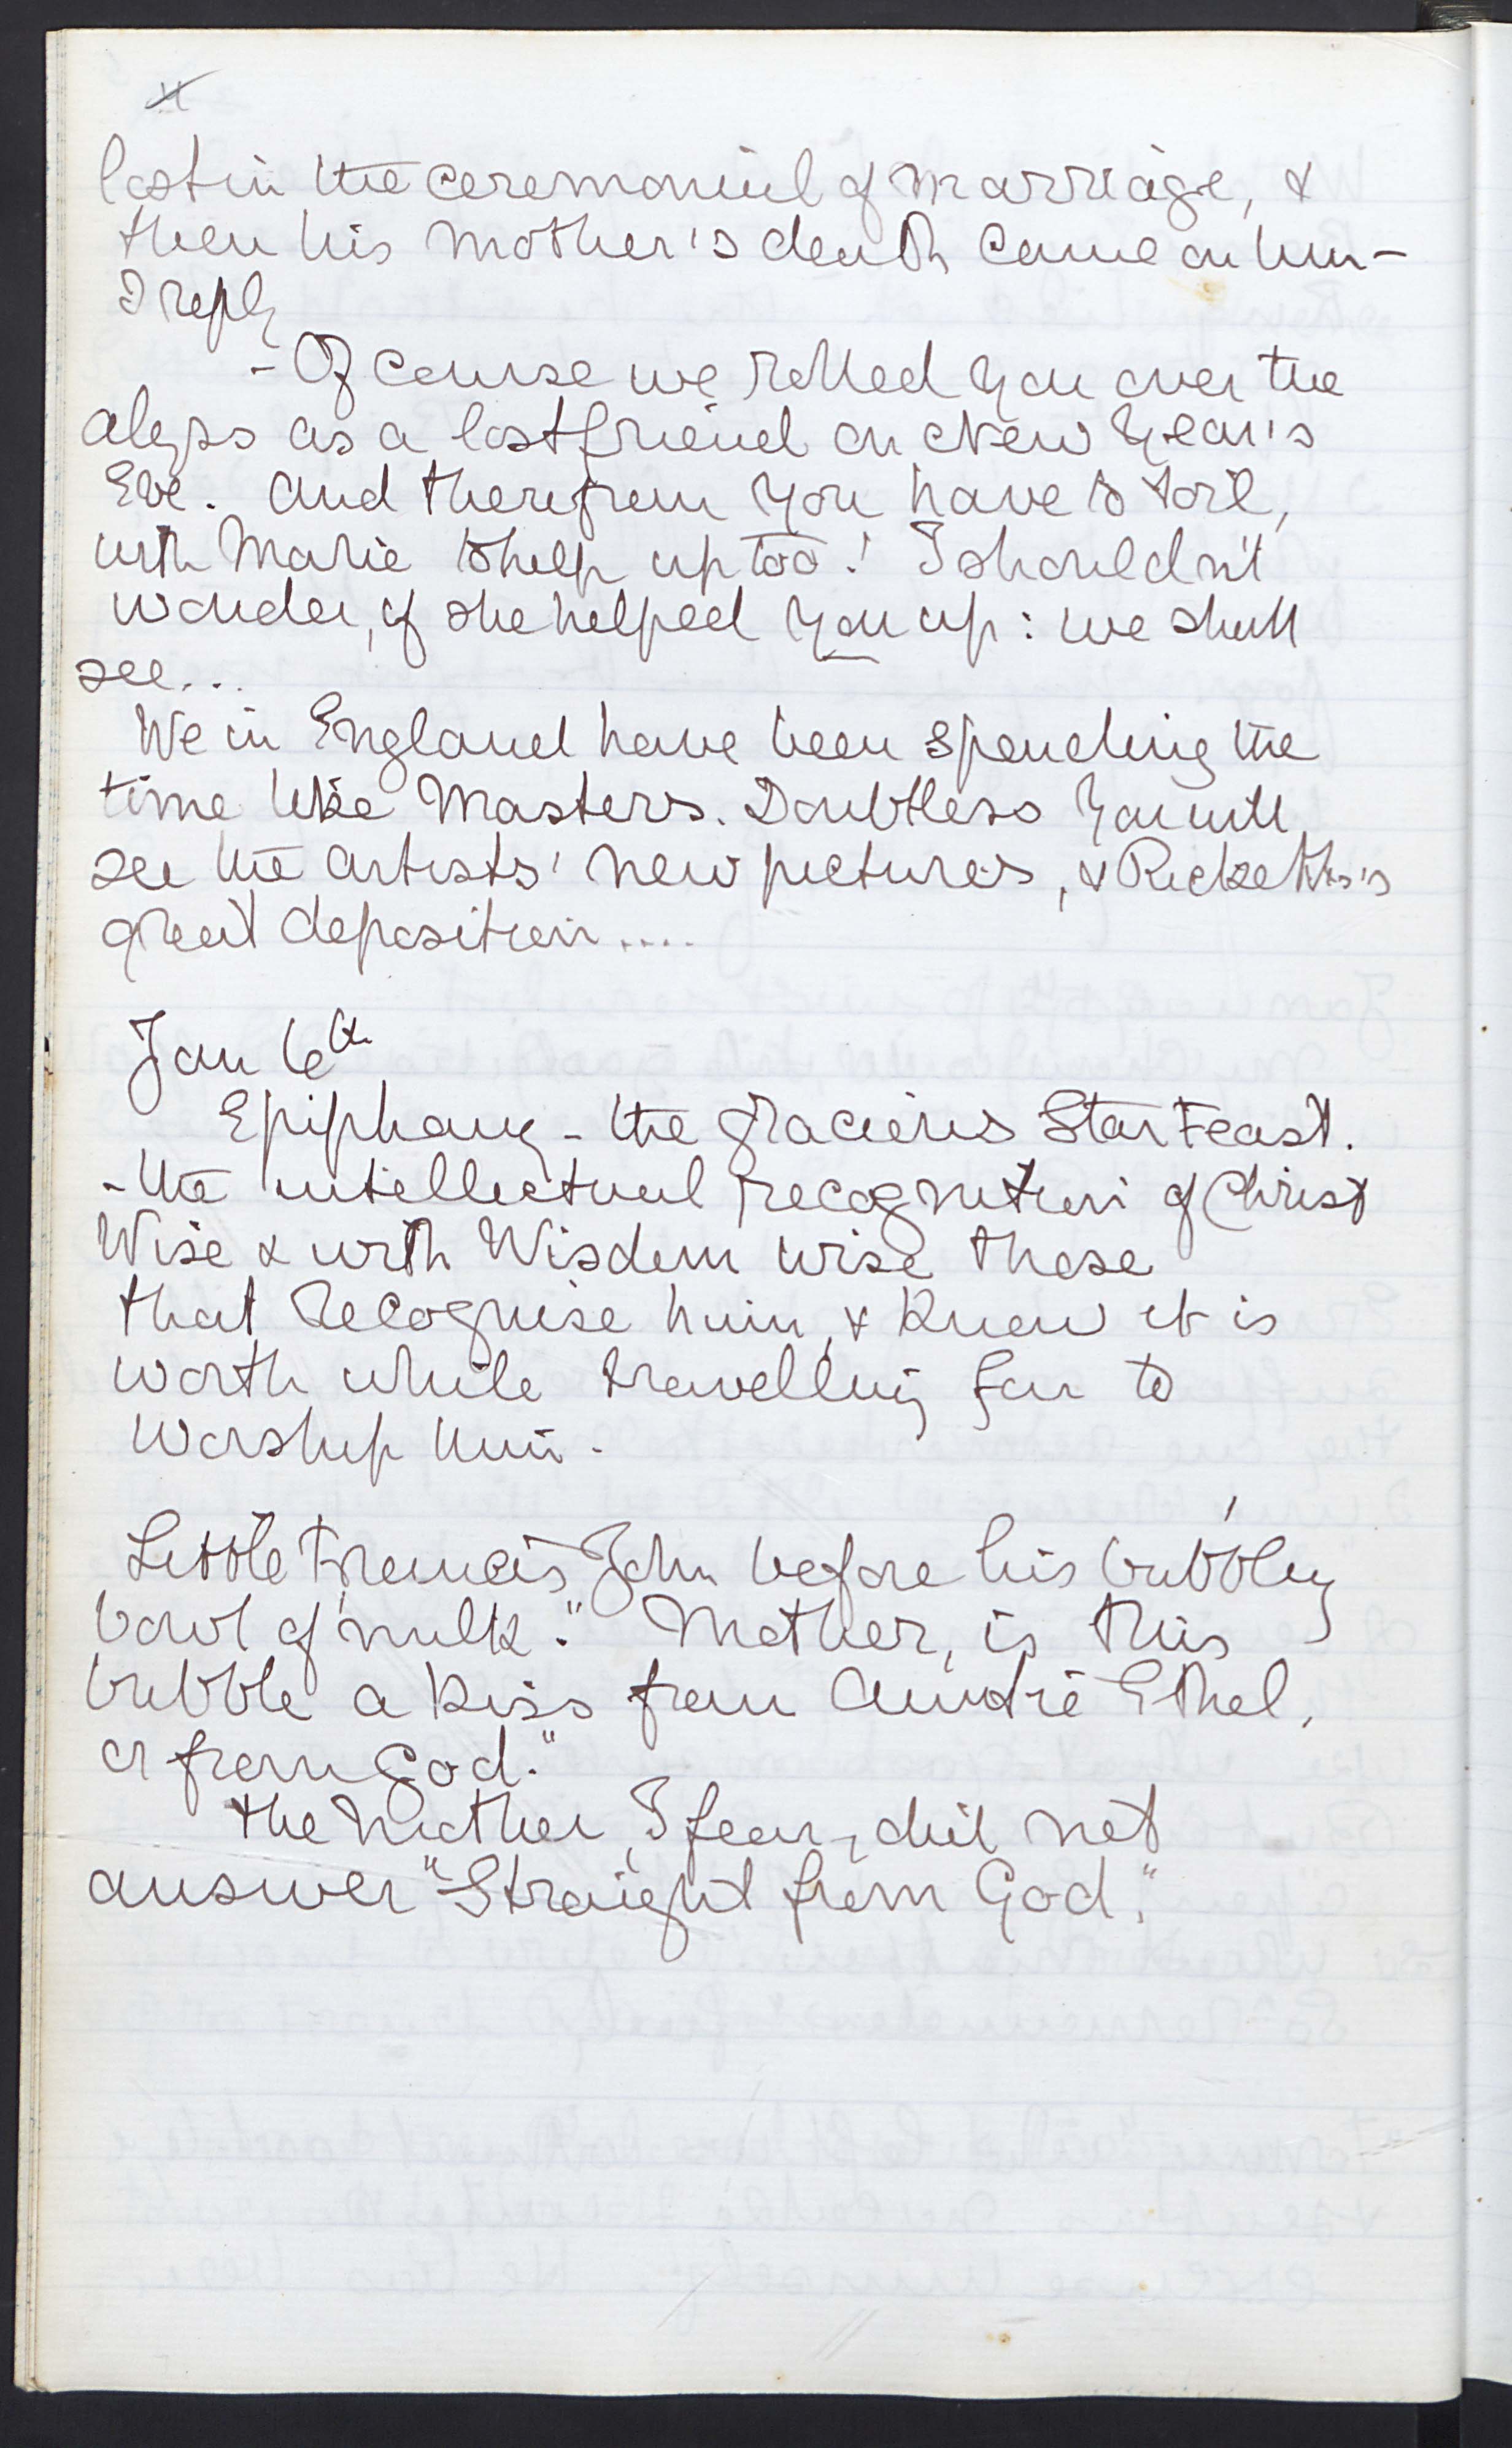 lost in the ceremonial of marriage, &
then his mother's death came on him –
I reply
– Of course we rolled you over the
abyss as a lost friend on New Year's
Eve. And therefrom you have to toil,
with Marie to help up too! I shouldn't
wonder, if she helped you up: we shall
see...
We in England have been spending the
time like Masters. Doubtless you will
see the artists' new pictures, & Ricketts's
great deposition....
Jan 6th
Epiphany – the gracious Star Feast.
– the intellectual recognition of Christ
Wise & with Wisdom wise those
that recognise him, & know it is
worth while travelling far to
worship him.
Little Francis John before his bubbley
bowl of milk. "Mother, is this
bubble a kiss from Auntie Ethel,
or from God."
The mother, I fear, did not
answer "Straight from God."